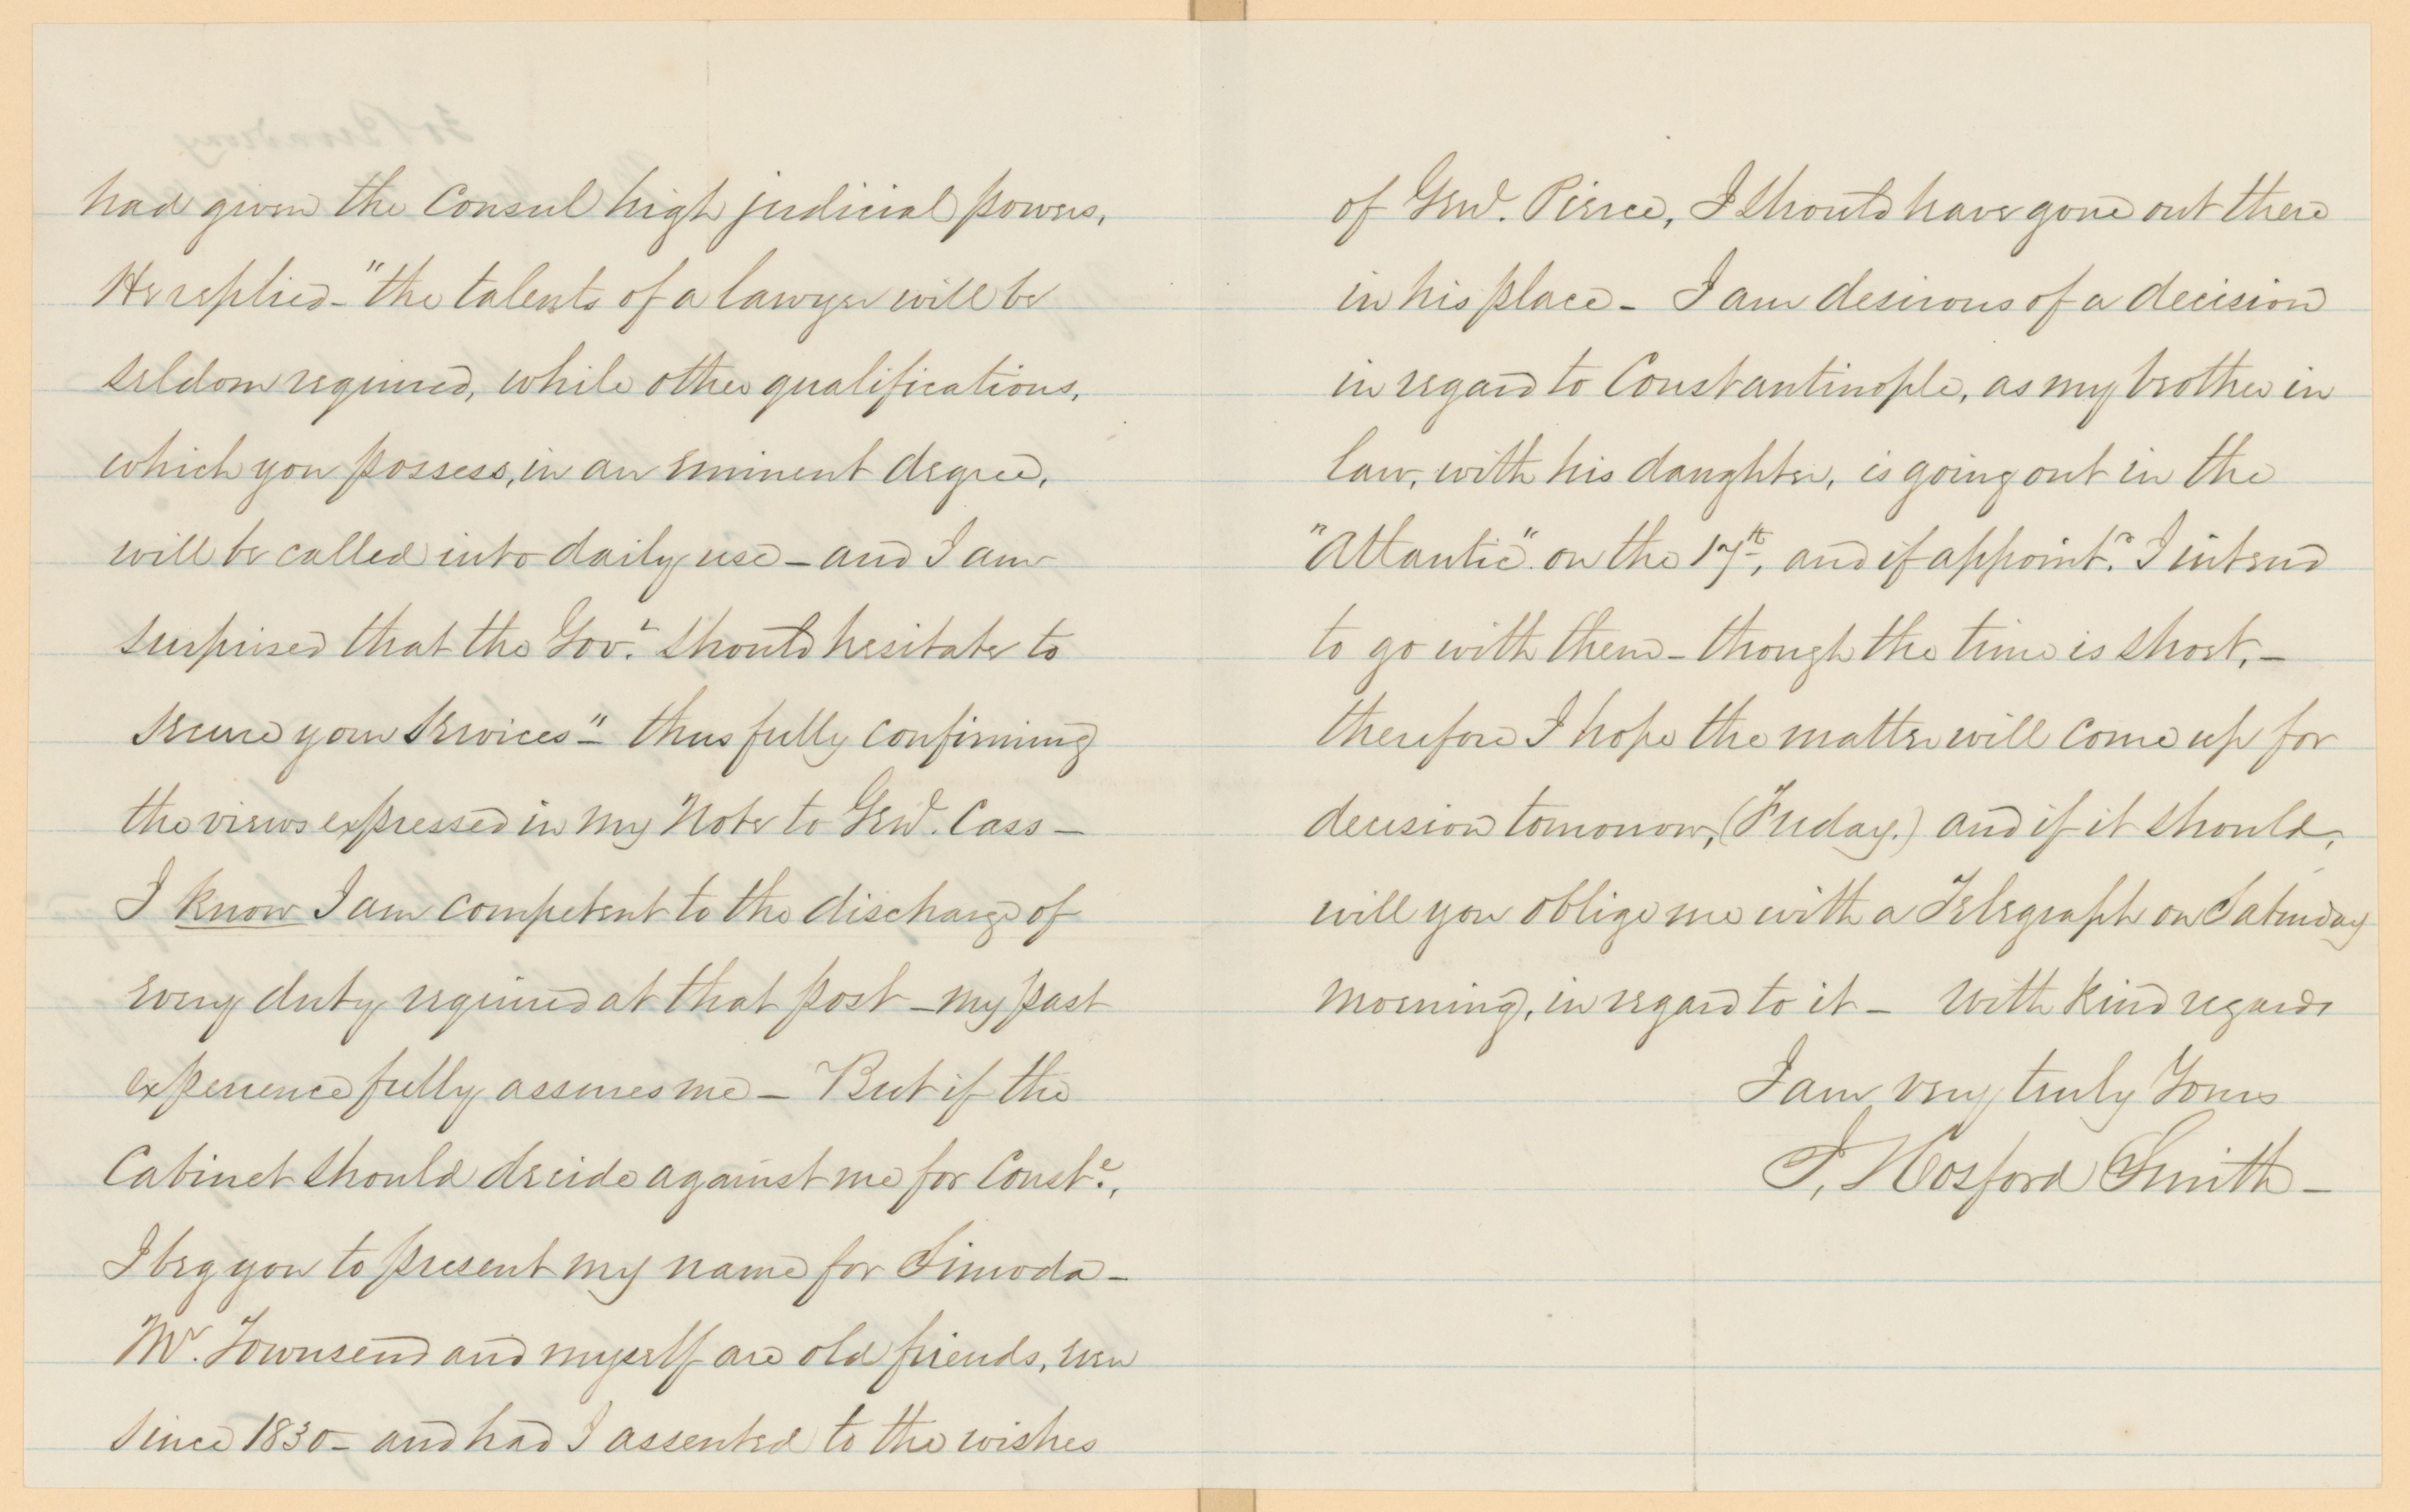 had given the Consul high judicial powers,
He replied - "the talents of a lawyer will be
seldom required, while other qualifications,
which you possess, in an eminent degree,
will be called into daily use - and I am
surprised that the Gov.t should hesitate to
secure your services" - thus fully confirming
the views expressed in my Note to Genl. Cass -
I know I am competent to the discharge of
every duty required at that post - my past
experience fully assures me - But if the
Cabinet should decide against me for Const.e,
I beg you to present my name for Simoda -
Mr. Townsend and myself are old friends, ever
since 1830 - and had I assented to the wishes
of Genl. Pierce, I should have gone out there
in his place - I am desirous of a decision
in regard to Constantinople, as my brother in
law, with his daughter, is going out in the
"Atlantic" on the 17th, and if appoint.d I intend
to go with them - though the time is short, -
therefore I hope the matter will come up for
decision tomorrow, (Friday.) and if it should,
will you oblige me with a Telegraph on Saturday
morning, in regard to it - With kind regards
I am very truly Yours
J. Hosford Smith -